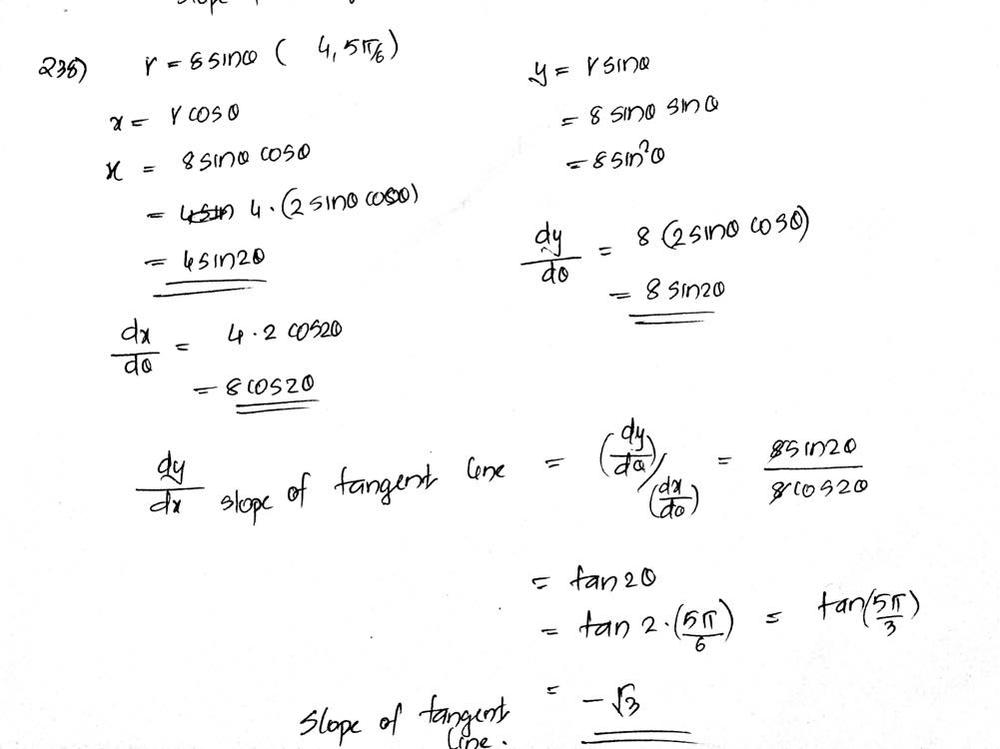 238) r = 8 sinθ ( 4, 5π/6)
x = r cosθ
x = 8 sinθ cosθ
= 4 · (2 sinθ cosθ)
= 4 sin2θ
dx/dθ = 4 · 2 cos2θ
= 8 cos2θ
y = r sinθ
= 8 sinθ sinθ
= 8 sin²θ
dy/dθ = 8 (2 sinθ cosθ)
= 8 sin2θ
dy/dx slope of tangent line = (dy/dθ)/(dx/dθ) = 8 sin2θ / 8 cos2θ
= tan 2θ
= tan 2 · (5π/6) = tan(5π/3)
Slope of tangent line. = -√3